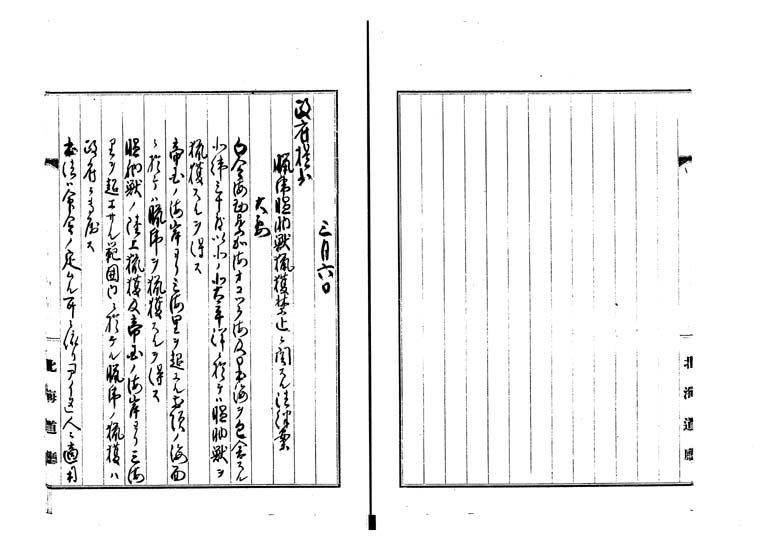 北海道廳
三月六日
政府提出
臘虎膃肭獣猟獲禁止ニ関スル法律案
大要
海オコツク海及日本海ヲ包含スル
北緯三十度以北ノ北太平洋ニ於ケル膃肭獣ヲ
猟獲スルヲ得ス
帝国ノ海岸ヨリ三海里ヲ超エル ノ海面
ニ於ケル臘虎ヲ猟獲スルヲ得ス
膃肭獣ノ陸上猟獲及帝国ノ海岸ヨリ三海
里ヲ超エサル範囲内ニ於ケル臘虎ノ猟獲ハ
政府ニ専属ス
本法ハ命令ノ定ムル所ニ依リアイヌ人ニ適用
北海道廳